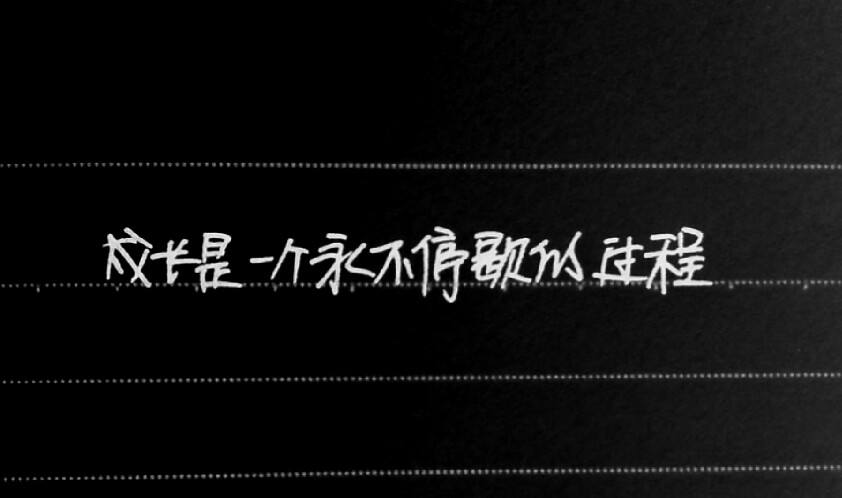 成长是一个永不停歇的过程